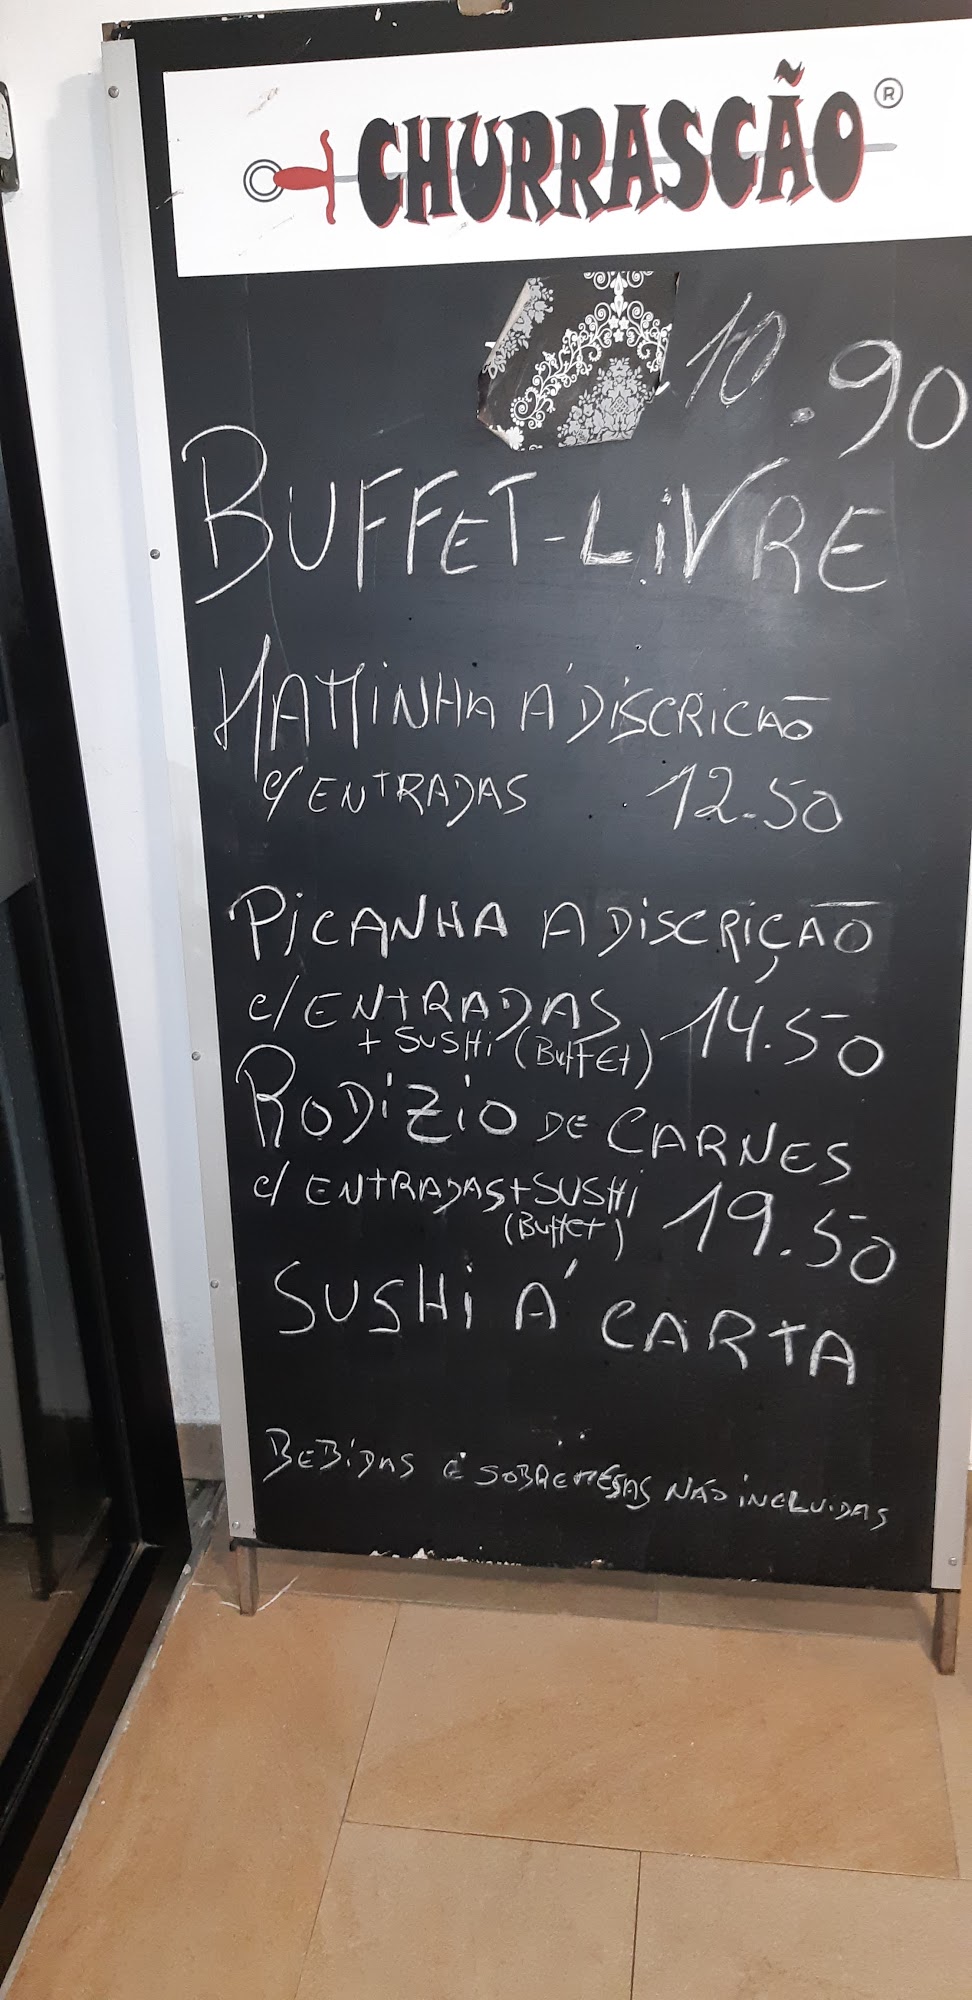 CHURRASCÃO ®
10.90
BUFFET-LiVRE
MAMINHA Á DiSCRICÃO
c/ ENTRADAS 12.50
PiCANHA A DiSCRiÇÃO
c/ ENTRADAS 14.50
+ SUSHi (BuffEt)
RODiZiO DE CARNES
c/ ENTRADAS + SUSHi 19.50
(Buffet)
SUSHi Á CARTA
BEBiDAS E SOBREMESAS NÃO iNCLUiDAS